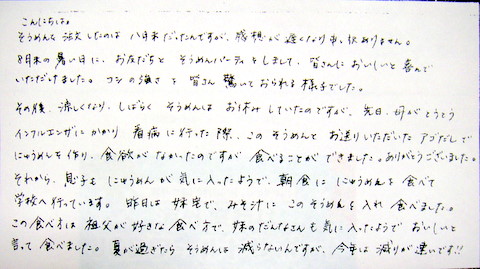 こんにちは。
そうめんを注文したのは 八月末だったんですが、感想が遅くなり申し訳ありません。
8月末の暑い日に、お友だちと そうめんパーティをしまして、皆さんに おいしいと喜んで
いただけました。コシの強さを皆さん驚いておられる様子でした。
その後、涼しくなり、しばらく そうめんは お休みしていたのですが、先日、母がとうとう
インフルエンザにかかり 看病に行った際、このそうめんと お送りいただいた アゴだしで
にゅうめんを作り、食欲がなかったのですが 食べることができました。ありがとうございました。
それから、息子も にゅうめんが気に入ったようで、朝食に にゅうめんを食べて
学校へ行っています。昨日は 妹宅で、みそ汁に このそうめんを入れ 食べました。
この食べ方は 祖父が好きな食べ方で、妹のだんなさんも気に入ったようで おいしいと
言って 食べました。夏が過ぎたら そうめんは 減らないんですが、今年は 減りが速いです!!